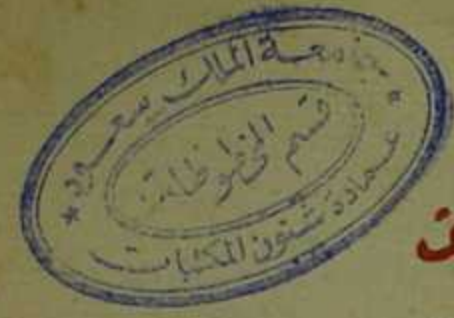 جامعة الملك سعود
قسم المخطوطات
عمادة شئون المكتبات
ن